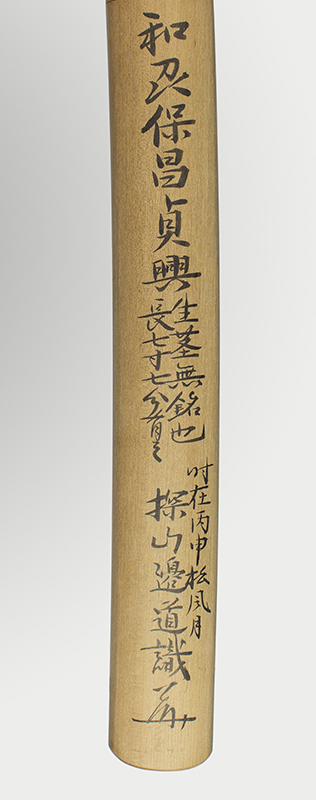 和州保昌貞興
生茎無銘也
長七寸七分有之
时在丙申松風月
探山邉道識